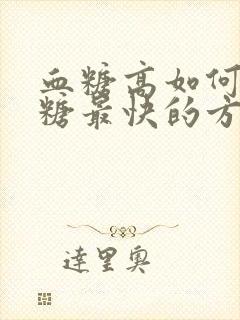 血糖高如何
糖最快的方
達里奥